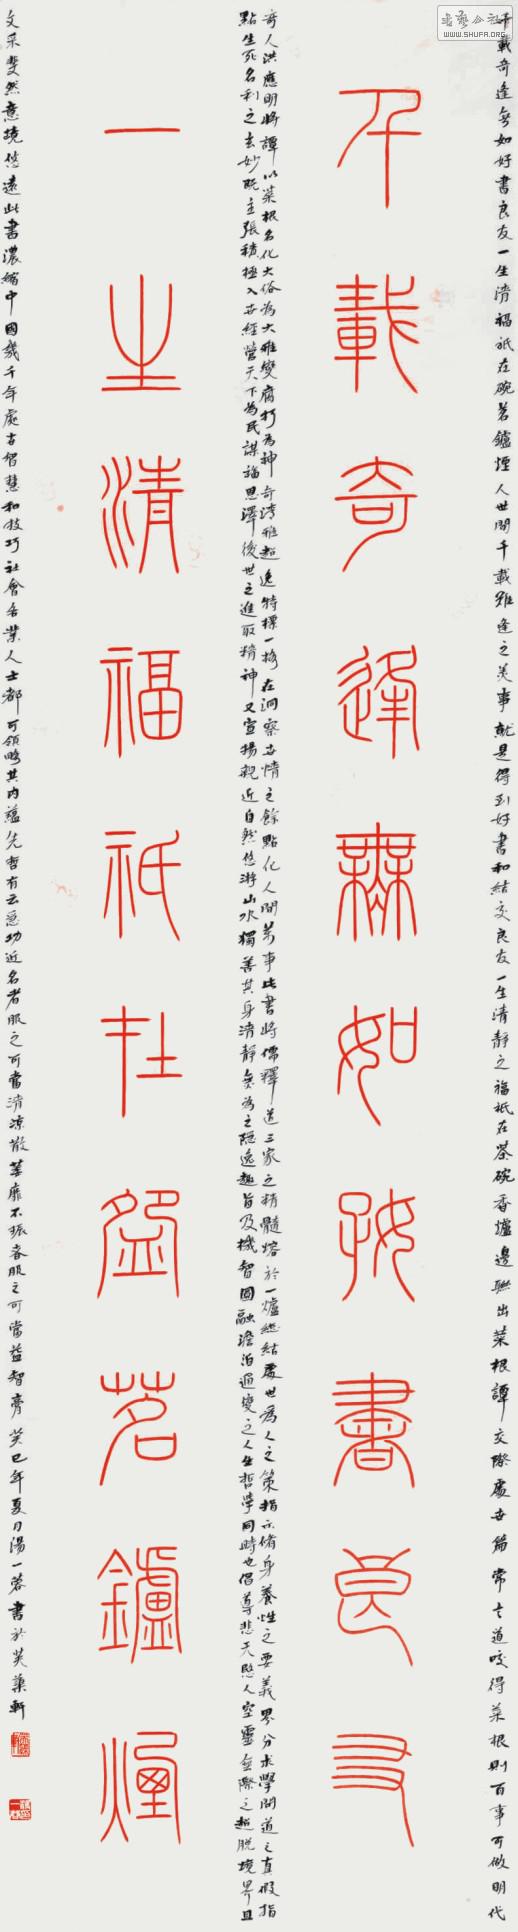 千載奇逢無如好書良友
一生清福祇在碗茗鑪煙
千載奇逢無如好書良友一生清福祇在碗茗鑪煙人世間千載難逢之美事就是得到好書和結交良友一生清靜之福祇在茶碗香爐邊聯出菜根譚交際處世篇常言道咬得菜根則百事可做明代
奇人洪應明將譚以菜根名化大俗為大雅變腐朽為神奇清雅超逸特標一格在洞察世情之餘點化人間萬事此書將儒釋道三家之精髓熔於一爐總結處世為人之策指示脩身養性之要義界分求學問道之真假指
點生死名利之玄妙既主張積極入世經營天下為民謀福恩澤後世之進取精神又宣揚親近自然悠游山水獨善其身清靜無為之隱逸趣旨及機智圓融澹泊通變之人生哲學同時也倡導悲天憫人空靈無際之超脫境界且
文采斐然意境悠遠此書濃縮中國幾千年處世智慧和技巧社會各業人士都可領略其內蘊先哲有云急功近名者服之可當清涼散萎靡不振者服之可當益智膏癸巳年夏月湯一蓉書於芙蕖軒
WWW.SHUFA.ORG